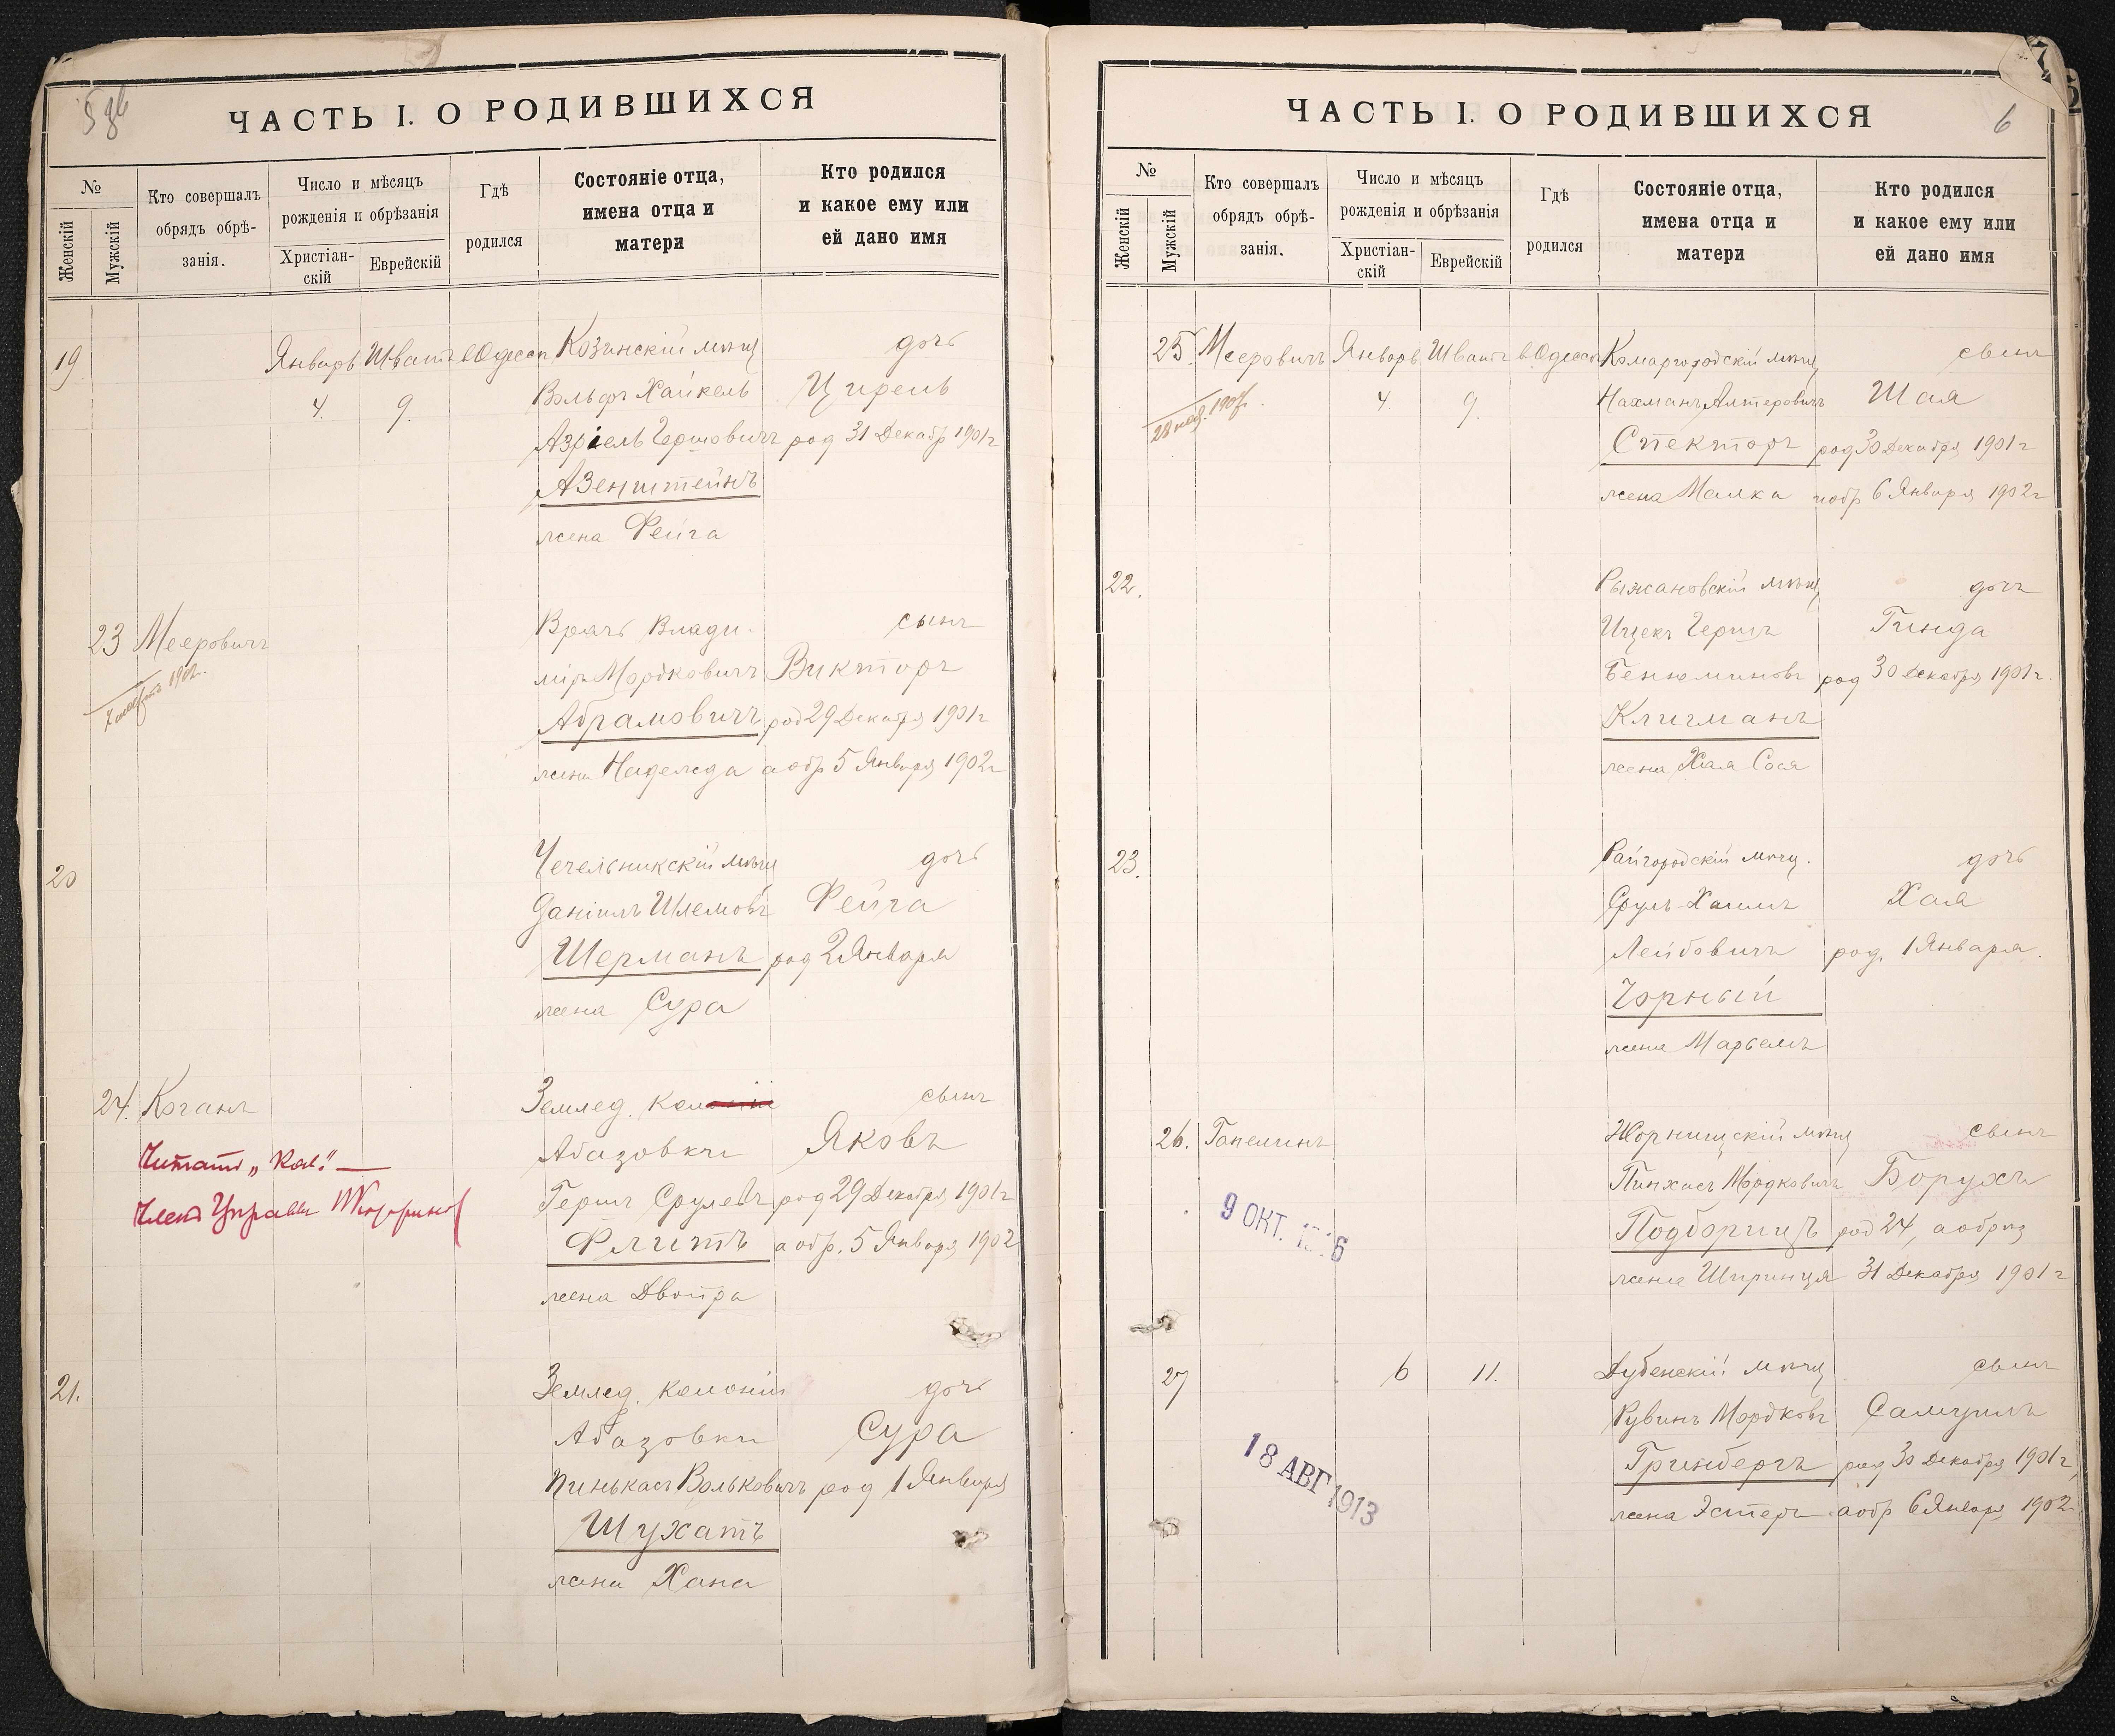 ЧАСТЬ I. О РОДИВШИХСЯ
№
Женскій
Мужскій
Кто совершалъ
обрядъ обрѣ-
занія.
Число и мѣсяцъ
рожденія и обрѣзанія
Христіан-
скій
Еврейскій
Гдѣ
родился
Состояніе отца,
имена отца и
матери
Кто родился
и какое ему или
ей дано имя
19 Январь Шватъ в Одессѣ Козинскій мѣщ дочь
4. 9. Вольфъ Хайкель Цирель
Азріель Гершовичъ род 31 Декабр 1901 г
Азенштейнъ
жена Фейга
23 Мееровичъ Врачъ Влади- сынъ
міръ Мордковичъ Викторъ
1902.
Абрамовичъ род 29 Декабря 1901 г
жена Надежда а обр 5 Января 1902 г
20 Чечельникскій мѣщ дочь
Даніилъ Шлемовъ Фейга
Шерманъ род 2 Января
жена Сура
24. Коганъ Землед. кол сынъ
Читать „Кол." Абазовки Яковъ
Членъ Управы
Гершъ Срулевъ род 29 Декабря 1901 г
Флитъ а обр. 5 Января 1902
жена Двойра
21. Землед. колоніи дочь
Абазовки Сура
Пинькасъ Вольковичъ род 1 Января
Шухатъ
жена Хана
ЧАСТЬ I. О РОДИВШИХСЯ
6
№
Женскій
Мужскій
Кто совершалъ
обрядъ обрѣ-
занія.
Число и мѣсяцъ
рожденія и обрѣзанія
Христіан-
скій
Еврейскій
Гдѣ
родился
Состояніе отца,
имена отца и
матери
Кто родился
и какое ему или
ей дано имя
25. Мееровичъ Январь Шватъ в Одессѣ Комаргородскій мѣщ сынъ
4. 9. Нахманъ Алтеровичъ Шая
Спекторъ род 30 Декабря 1901 г
жена Малка и обр 6 Января 1902 г
22. Рыжановскій мѣщ дочь
Ицекъ Гершъ Гинда
Бенюминовъ род 30 Декабря 1901 г.
Клигманъ
жена Хая Сося
23. Райгородскій мѣщ. дочь
Сруль-Хаимъ Хая
Лейбовичъ род. 1 Января.
Чорный
жена Марьемъ
26. мѣщ сынъ
Пинхасъ Мордковичъ Борухъ
9 ОКТ.
Подборицъ род 24, а обрѣз
жена Шпринця 31 Декабря 1901 г
27 6 11. Дубенскій мѣщ сынъ
Рувинъ Мордковъ Самуилъ
18 АВГ 1913
Гринбергъ род 30 Декабря 1901 г,
жена Эстеръ а обр 6 Января 1902